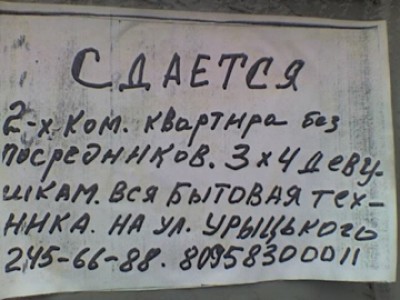 СДАЕТСЯ
2-х ком. квартира без
посредников. 3х4 деву-
шкам. вся бытовая тех-
ника. на ул. урыцького
245-66-88. 80958300011